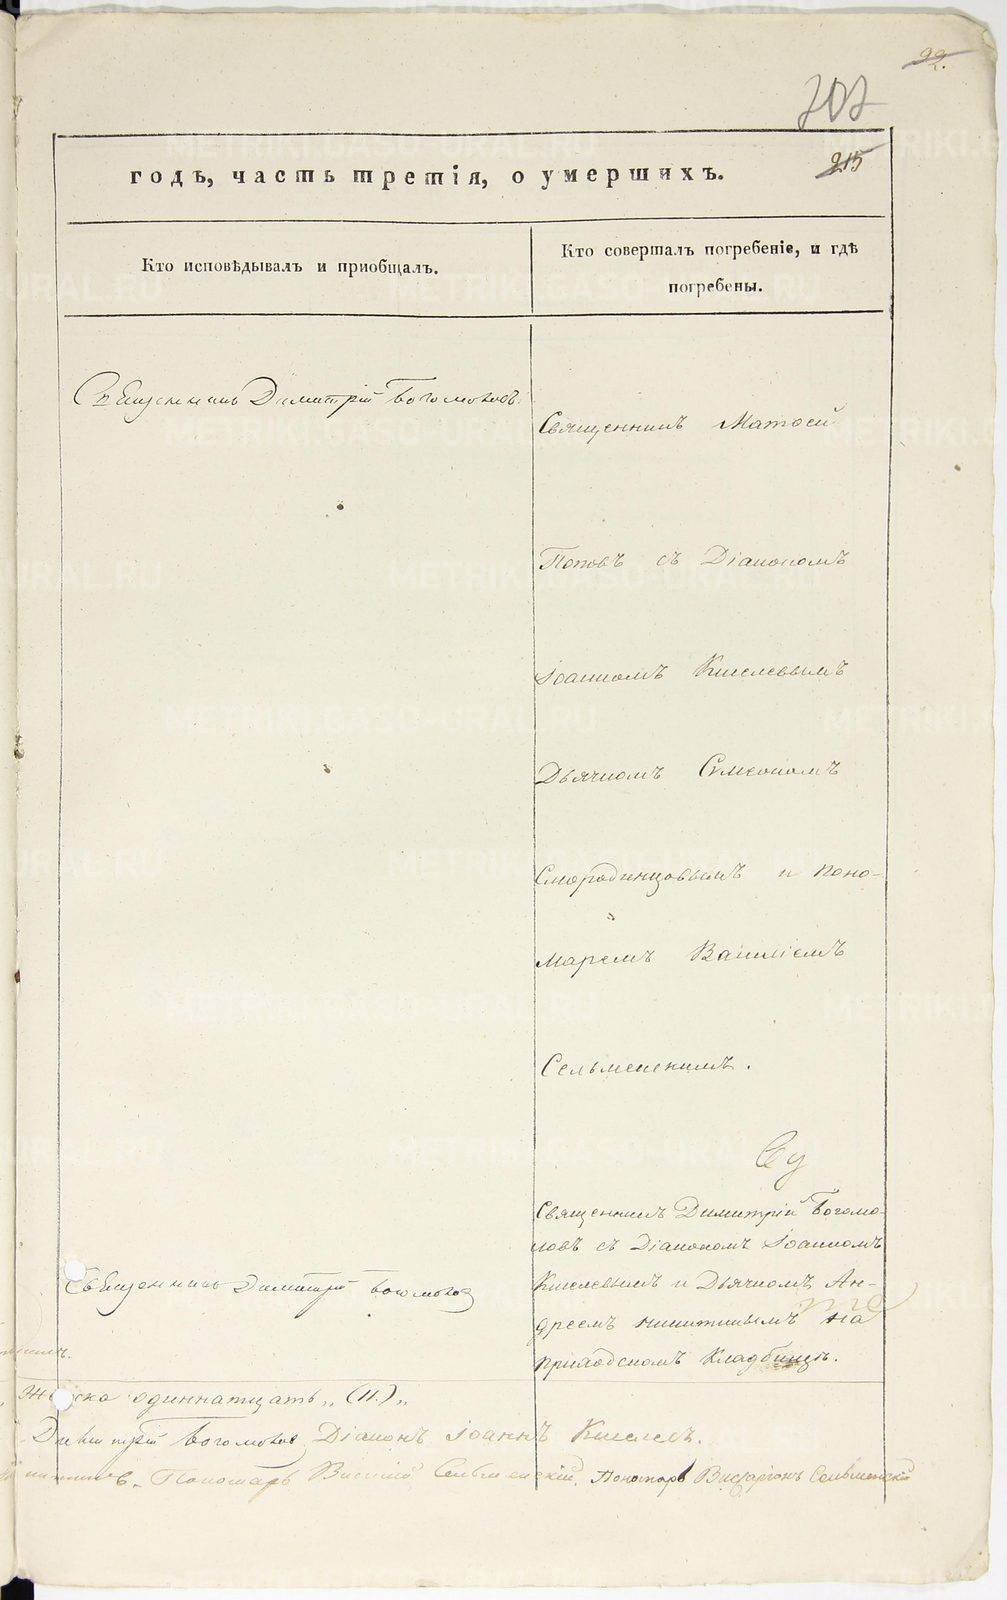 99.
202
215
годъ, часть третія, о умершихъ.
Кто исповѣдывалъ и приобщалъ.
Кто совершалъ погребеніе, и гдѣ
погребены.
Священникъ Димитрій Богомоловъ.
Священникъ Матѳей
Поповъ съ Діакономъ
Іоанномъ Киселевымъ
Дьячкомъ Симеономъ
Смородинцовымъ и поно-
маремъ Василіемъ
Сельменскимъ.
Священникъ Димитрій Богомо-
ловъ съ Діакономъ Іоанномъ
Киселевымъ и Дьячкомъ Ан-
дреемъ Никитинымъ на
приходскомъ кладбищѣ.
Священникъ Димитрій Богомолов
Женска одиннатцать „(11.)„
Димитрій Богомолов Діаконъ Іоаннъ Киселевъ.
Пономарь Василій Сельменскій. Пономарь Висаріонъ Сельменскій
METRIKI.GASO-URAL.RU